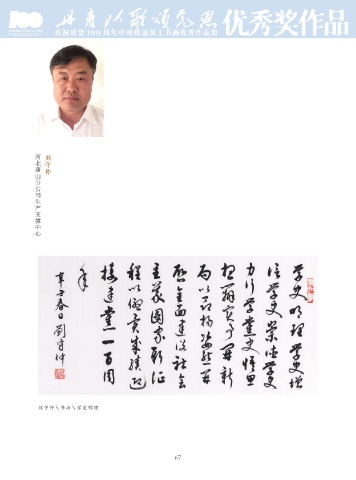 100
丹青以歌颂党恩 优秀奖作品
庆祝建党100周年中外铁通员工书画优秀作品集
刘守仲
河北唐山分公司生产支撑中心
学史明理学史增
信学史崇德学史
力行学党史悟思
想办实事开新
局以昂扬姿态
全面建设社会
主义国家新征
程以优异成绩迎
接建党一百周
年
辛丑春日刘守仲
刘守仲\书法\学史明理
67